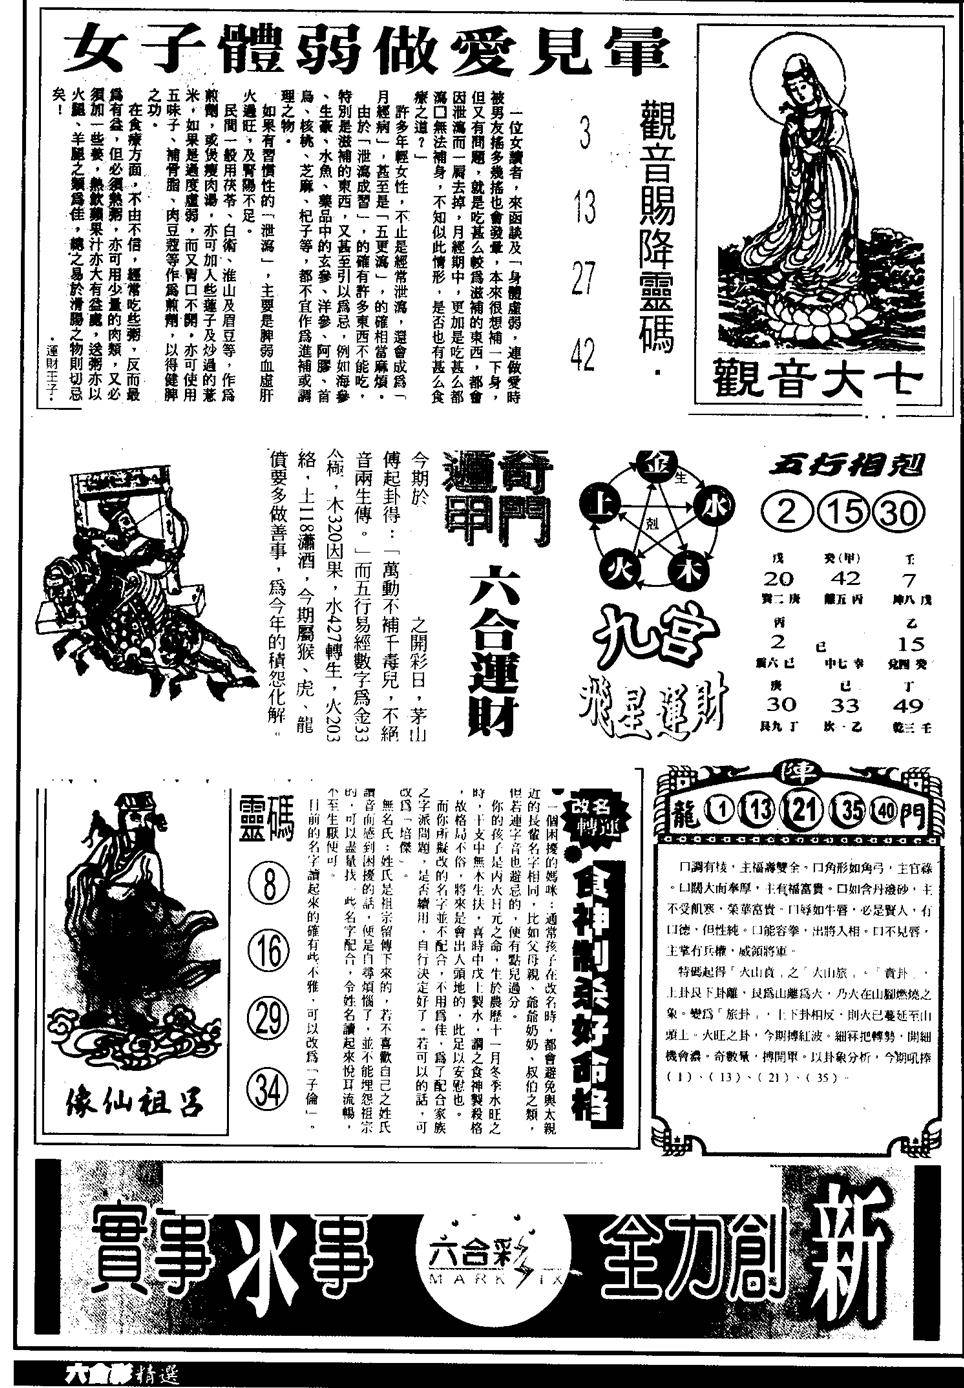 女子體弱做愛見暈
一位女讀者，來函談及「身體虛弱，連做愛時
被男友搖多幾搖也會發暈，本來很想補一下身，
但又有問題，就是吃甚么較為滋補的東西，都會
因泄瀉而一屙去掉，月經期中，更加是吃甚么都
瀉口無法補身，不知似此情形，是否也有甚么食
療之道？」
許多年輕女性，不止是經常泄瀉，還會成為「
月經病」，甚至是「五更瀉」，的確相當麻煩。
由於「泄瀉成習」，的確有許多東西不能吃，
特別是滋補的東西，又甚至引以為忌，例如海參
、生蠔、水魚、藥品中的玄參、洋參、阿膠、首
烏、核桃、芝麻、杞子等，都不宜作為進補或調
理之物。
如果有習慣性的「泄瀉」，主要是脾弱血虛肝
火過旺，及腎陽不足。
民間一般用茯苓、白術、淮山及眉豆等，作為
煎劑，或煲瘦肉湯，亦可加入些蓮子及炒過的薏
米，如果是過度虛弱，而又胃口不開，亦可使用
五味子、補骨脂、肉豆蔻等作為煎劑，以得健脾
之功。
在食療方面，不由不信，經常吃些粥，反而最
為有益，但必須熱粥，亦可用少量的肉類，又必
須加一些薑，熱飲蘋果汁亦大有益處，送粥亦以
火腿、羊腿之類為佳，總之易於滑腸之物則切忌
矣！
．運財王子．
觀音賜降靈碼．
3
13
27
42
觀音大士
奇門
遁甲
六合運財
今期於
之開彩日，茅山
傳起卦得：「萬動不補千毒兒，不絕
音兩生傳。」而五行易經數字為金33
木320因果，水427轉生，火203
絡，土118瀟洒，今期屬猴、虎、龍
債要多做善事，為今年的積怨化解。
金
水
木
火
土
生
剋
五行相剋
2 15 30
戊 癸(甲) 壬
20 42 7
巽二庚 離五丙 坤八戊
丙 乙
2 己 15
震六己 中七辛 兌四癸
庚 己 丁
30 33 49
艮九丁 坎一乙 乾三壬
九宮
飛星運財
呂祖仙像
靈碼
8
16
29
34
改名
轉運
食神制杀好命格
一個困擾的媽咪：通常孩子在改名時，都會避免與太親
近的長輩名字相同，比如父母親、爺爺奶奶、叔伯之類，
但若連字音也避忌的，便有點兒過分。
你的孩子是丙火日元之命，生於農歷十一月冬季水旺之
時，干支中無木生扶，喜時中戊土製水，謂之食神製殺格
，故格局不俗，將來是會出人頭地的，此足以安慰也。
而你所擬改的名字並不配合，不用為佳，為了配合家族
之字派問題，是否續用，自行決定好了。若可以的話，可
改為「培傑」。
無名氏：姓氏是祖宗留傳下來的，若不喜歡自己之姓氏
讀音而感到困擾的話，便是自尋煩惱了，並不能埋怨祖宗
的，可以盡量找一些名字配合，令姓名讀起來悅耳流暢，
不至生厭便可。
目前的名字讀起來的確有些不雅，可以改為「子倫」。
陣
龍 1 13 21 35 40 門
口調有枝，主福壽雙全。口角形如角弓，主官祿
。口闊大而奉厚，主有福富貴。口如含丹潑砂，主
不受飢寒，榮華富貴。口唇如牛唇，必是賢人，有
口德，但性純。口能容拳，出將入相。口不見唇，
主掌有兵權，威領將軍。
特碼起得「火山貞」之「火山旅」。「賁卦」，
上卦艮下卦離，艮為山離為火，乃火在山腳燃燒之
象。變為「旅卦」，上下卦相反，則火已蔓延至山
頭上。火旺之卦，今期搏紅波。細冧把轉勢，開細
機會濃。奇數量，搏開單。以卦象分析，今期吼捧
（1）、（13）、（21）、（35）。
實事求事
六合彩
MARK SIX
全力創新
六合彩精選